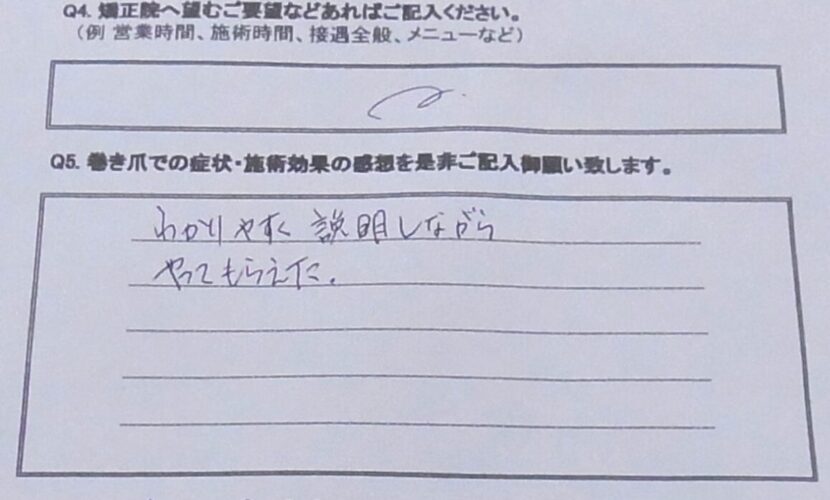 Q4. 矯正院へ望むご要望などあればご記入ください。
（例 営業時間、施術時間、接遇全般、メニューなど）
Q5. 巻き爪での症状・施術効果の感想を是非ご記入御願い致します。
わかりやすく説明しながら
やってもらえた.